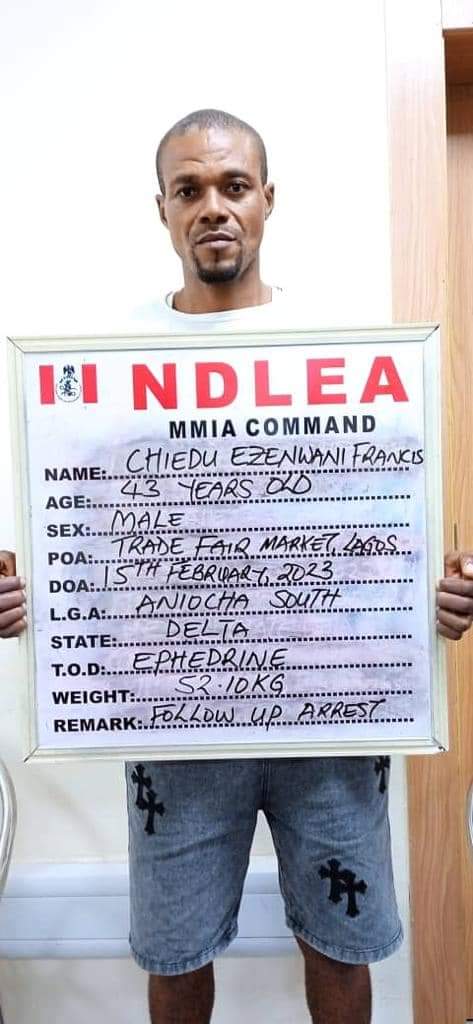 NDLEA
MMIA COMMAND
NAME: CHIEDU EZENWANI FRANCIS
AGE: 43 YEARS OLD
SEX: MALE
POA: TRADE FAIR MARKET, LAGOS
DOA: 15TH FEBRUARY, 2023
L.G.A: ANIOCHA SOUTH
STATE: DELTA
T.O.D: EPHEDRINE
WEIGHT: 52.10KG
REMARK: FOLLOW UP ARREST